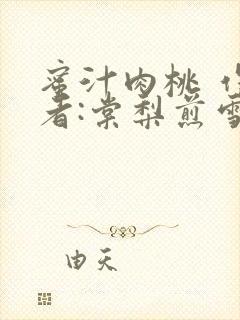 蜜汁肉桃
者:棠梨煎雪
由天